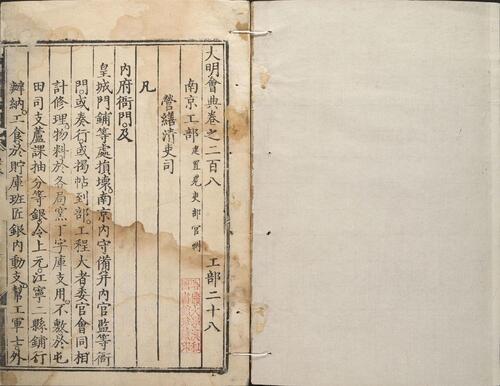 大明會典卷之二百八 工部二十八
南京工部 建置見吏部官制
營繕清吏司
凡
內府衙門。及
皇城門鋪等處損壞。南京內守備并內官監等衙
門。或奏行。或揭帖到部。工程大者。委官會同相
計修理。物料於各局窯丁字庫支用。不敷於屯
田司支蘆課抽分等銀。令上元。江寧二縣鋪行
辦納。工食於貯庫班匠銀內動支。幫工軍士。外